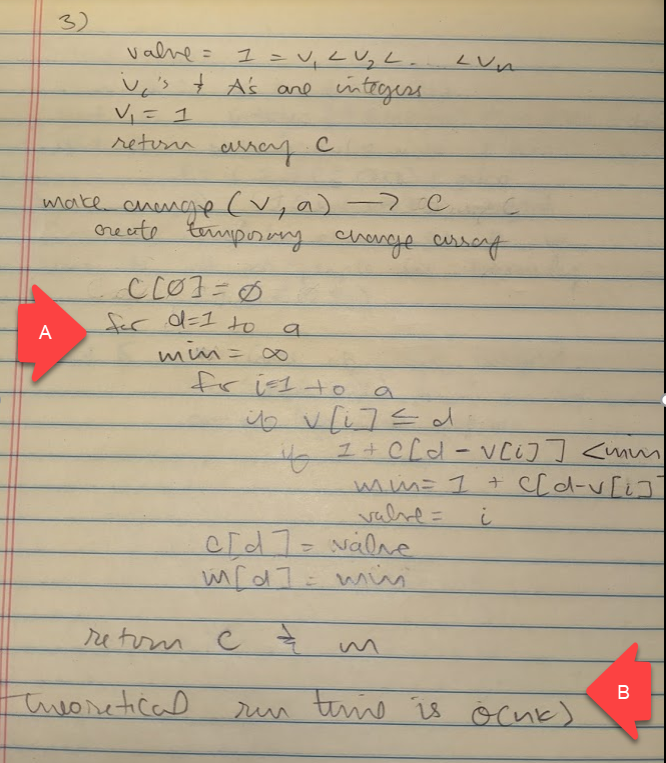 3)
value = 1 = v₁ < v₂ < . . . < vₙ
vᵢ's & A's are integers
v₁ = 1
return array C
make change (v, a) → C
create temporary change array
C[Ø] = Ø
A
for d=1 to a
min = ∞
for i=1 to a
if v[i] ≤ d
if 1 + C[d - v[i]] < min
min = 1 + C[d-v[i]
value = i
c[d] = value
m[d] = min
return c & m
B
Theoretical run time is O(nk)